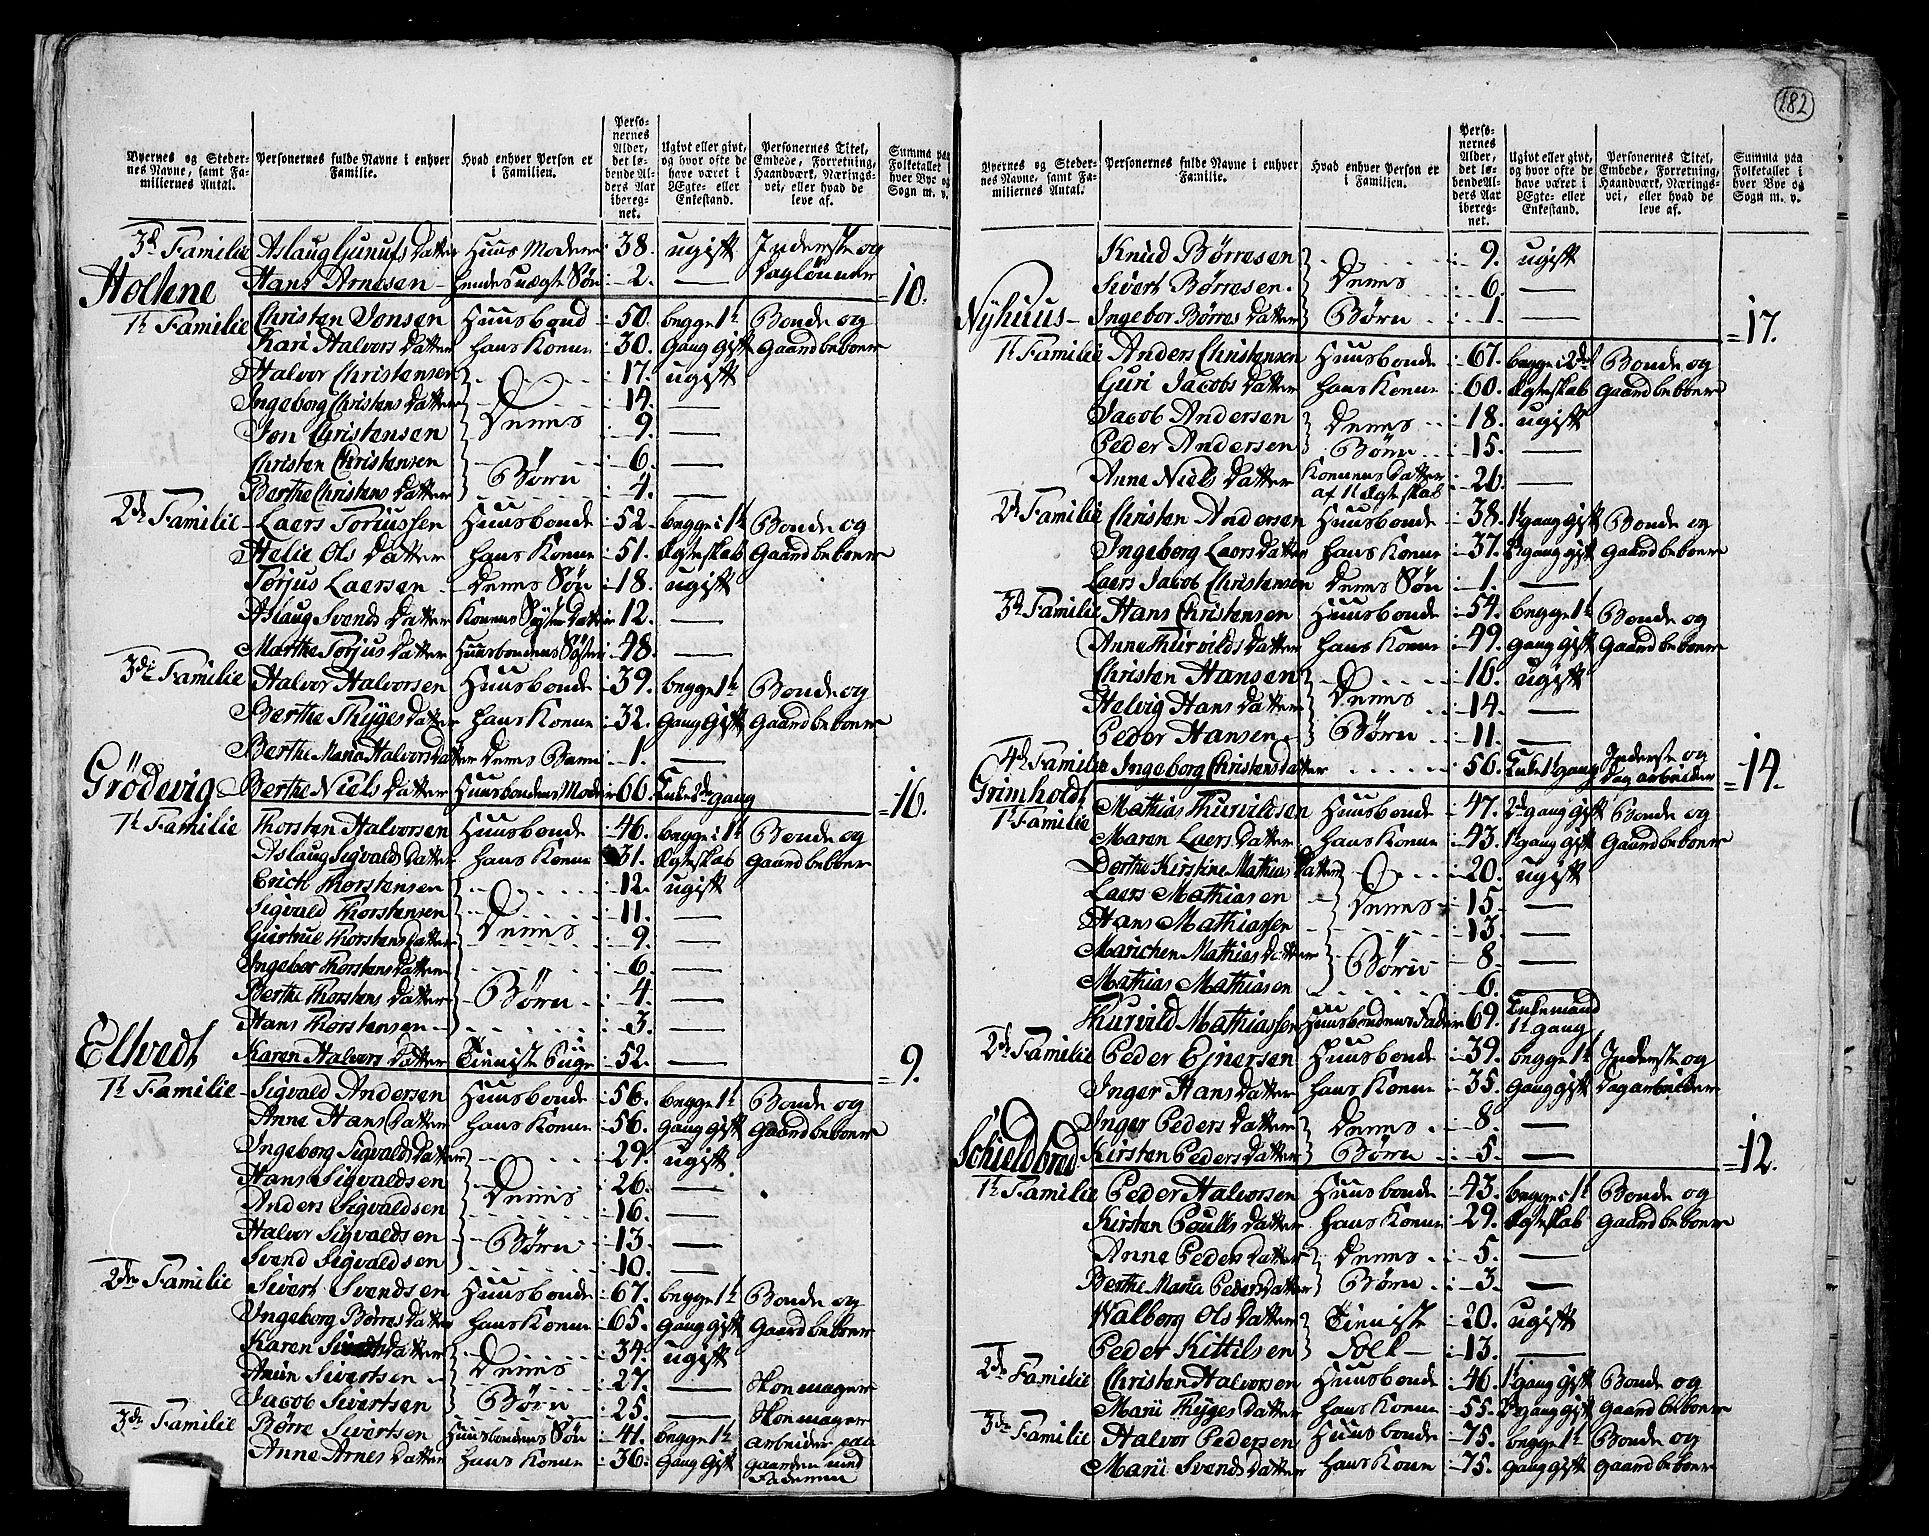 Byernes og Steder-
nes Navne, samt Fa-
miliernes Antal.
Personernes fulde Navne i enhver
Familie.
Hvad enhver Person er
i Familien.
Perso-
nernes
Alder,
det lø-
bende Al-
ders Aar
iberegnet.
Ugivt eller givt,
og hvor ofte de
have været i
Ægte- eller
Enkestand.
Personernes Titel,
Embede, Forretning,
Haandværk, Nærings-
vei, eller hvad de
leve af.
Summa paa
Folketallet i
hver Bye og
Sogn m. v.
3d Familie Aslaug Gunufs Datter Huus Moder 38. ugift Inderste og
Hans Arnesen hendes uægte Søn 2. — Dagløuner = 10.
Holtene
1t Familie Christen Jonsen Huusbond 50. begge 1t Bonde og
Kari Halvors Datter hans Konne 30. Gang Gift Gaardbeboer
Halvor Christensen 17. ugift
Ingeborg Christens Datter 14. —
Jon Christensen Deres 9. —
Christen Christensen 6. —
Berthe Christens Datter Børn 4. —
2de Familie Laers Toriussen Huusbonde 52. begge i 1t Bonde og
Helie Ols Datter hans Konne 51. Egteskab Gaardbeboer
Torjus Laersen Deres Søn 18. ugift
Aslaug Svends Datter Konens Søster Datter 12. —
Marthe Torjus Datter Huusbondens Søster 48. —
3de Familie Halvor Halvorsen Huusbonde 39. begge 1t Bonde og
Berthe Thyges Datter hans Konne 32. Gang Gift Gaardbeboer
Berthe Maria Halvors Datter Deres Barn 1. —
Berthe Niels Datter Huusbondens Moder 66. Enke 2den gang = 16.
Grödevig
1t Familie Thorsten Halvorsen Huusbonde 46. begge i 1t Bonde og
Aslaug Sigvalds Datter hans Konne 31. Egteskab Gaardbeboer
Erich Thorstensen 12. ugift
Sigvald Thorstensen 11. —
Giertrue Thorstens Datter Deres 9. —
Ingebor Thorstens Datter 6. —
Berthe Thorstens Datter Børn 4. —
Hans Thorstensen 3. —
Karen Halvors Datter Tieniste Pige 52. — = 9.
Eltvedt
1t Familie Sigvald Andersen Huusbonde 56. begge 1t Bonde og
Anne Hans Datter hans Konne 56. Gang Gift Gaardbeboer
Yngeborg Sigvalds Datter 29. ugift.
Hans Sigvaldsen 26. —
Anders Sigvaldsen Deres 16. —
Halvor Sigvaldsen 13. —
Svend Sigvaldsen Børn 10. —
2den Familie Sivert Svendsen Huusbonde 67. begge 1t Bonde og
Yngeborg Børres Datter hans Konne 65. Gang Gift Gaardbeboer
Karen Siverts Datter 34. ugift
Amün Sivertsen Deres 27. — Skomager
Jacob Sivertsen Børn 25. — Skomager
3de Familie Børre Sivertsen Huusbondens Søn 41. begge 1t arbeider paa
Anne Arnes Datter hans Konne 36. Gang Gift Gaarden med
Faderen
182
Byernes og Steder-
nes Navne, samt Fa-
miliernes Antal.
Personernes fulde Navne i enhver
Familie.
Hvad enhver Person er
i Familien.
Perso-
nernes
Alder,
det lø-
bende Al-
ders Aar
iberegnet.
Ugivt eller givt,
og hvor ofte de
have været i
Ægte- eller
Enkestand.
Personernes Titel,
Embede, Forretning,
Haandværk, Nærings-
vei, eller hvad de
leve af.
Summa paa
Folketallet i
hver Bye og
Sogn m. v.
Knud Børresen 9. ugift
Sivert Børresen. Deres 6. —
Ingebor Børres Datter Børn 1. — = 17.
Nÿhuus
1t Familie Anders Christensen Huusbonde 67. begge i 2det Bonde og
Guri Jacobs Datter hans Konne 60. Egteskab Gaardbeboer
Jacob Andersen Deres 18. ugift
Peder Andersen Børn 15. —
Anne Niels Datter Konnens Datter af 1t Egteskab 26. —
2de Familie Christen Andersen Huusbonde 38. 1t gang gift Bonde og
Ingeborg Laers Datter hans Konne 37. gang gift Gaardbeboer
Laers Jacob Christensen Deres Søn 1. —
3de Familie Hans Christensen Huusbonde 54. begge 1t Bonde og
Anne Thurvilds Datter hans Konne 49. Gang Gift Gaardbeboer
Christen Hansen 16. ugift
Helvig Hans Datter Deres 14. —
Peder Hansen Børn 11. —
4de Familie Ingeborg Christens Datter 56. Enke 1t gang Inderste og Dagarbeider = 14.
Grimholdt
1t Familie Mathias Thurvildsen Huusbonde 47. 2den gang gift Bonde og
Maren Laers Datter hans Konne 43. 1t gang gift Gaardbeboer
Dorthe Kirstine Mathias Datter 20. ugift
Laers Mathiasen Deres 15. —
Hans Mathiassen 13. —
Marichen Mathias Datter Børn 8. —
Mathias Mathiasen 6. —
Thurvild Mathiassen Huusbondens Fader 69. Enkemand
1t gang
2de Familie Peder Ejnersen Huusbonde 39. begge 1t Inderste og
Inger Hans Datter hans Konne 35. Gang Gift Dagarbeider
Inger Peders Datter Deres 8. —
Kirsten Peders Datter Børn 5. — = 12.
Schieldbred
1t Familie Peder Halvorsen Huusbonde 43. begge i 1t Bonde og
Kirsten Poulls Datter hans Konne 29. Egteskab Gaardbeboer
Anne Peders Datter Deres 5. —
Berthe Maria Peders Datter Børn 3. —
Walborg Ols Datter Tieniste 20. ugift
Peder Kittilsen Folk 13. —
2de Familie Christen Halvorsen Huusbonde 46. 1t gang gift Bonde og
Marii Thyges Datter hans Konne 55. gang gift Gaardbeboer
3de Familie Halvor Pedersen Huusbonde 75. begge 1t Bonde og
Marii Svends Datter hans Konne 75. gang gift Gaardbeboer